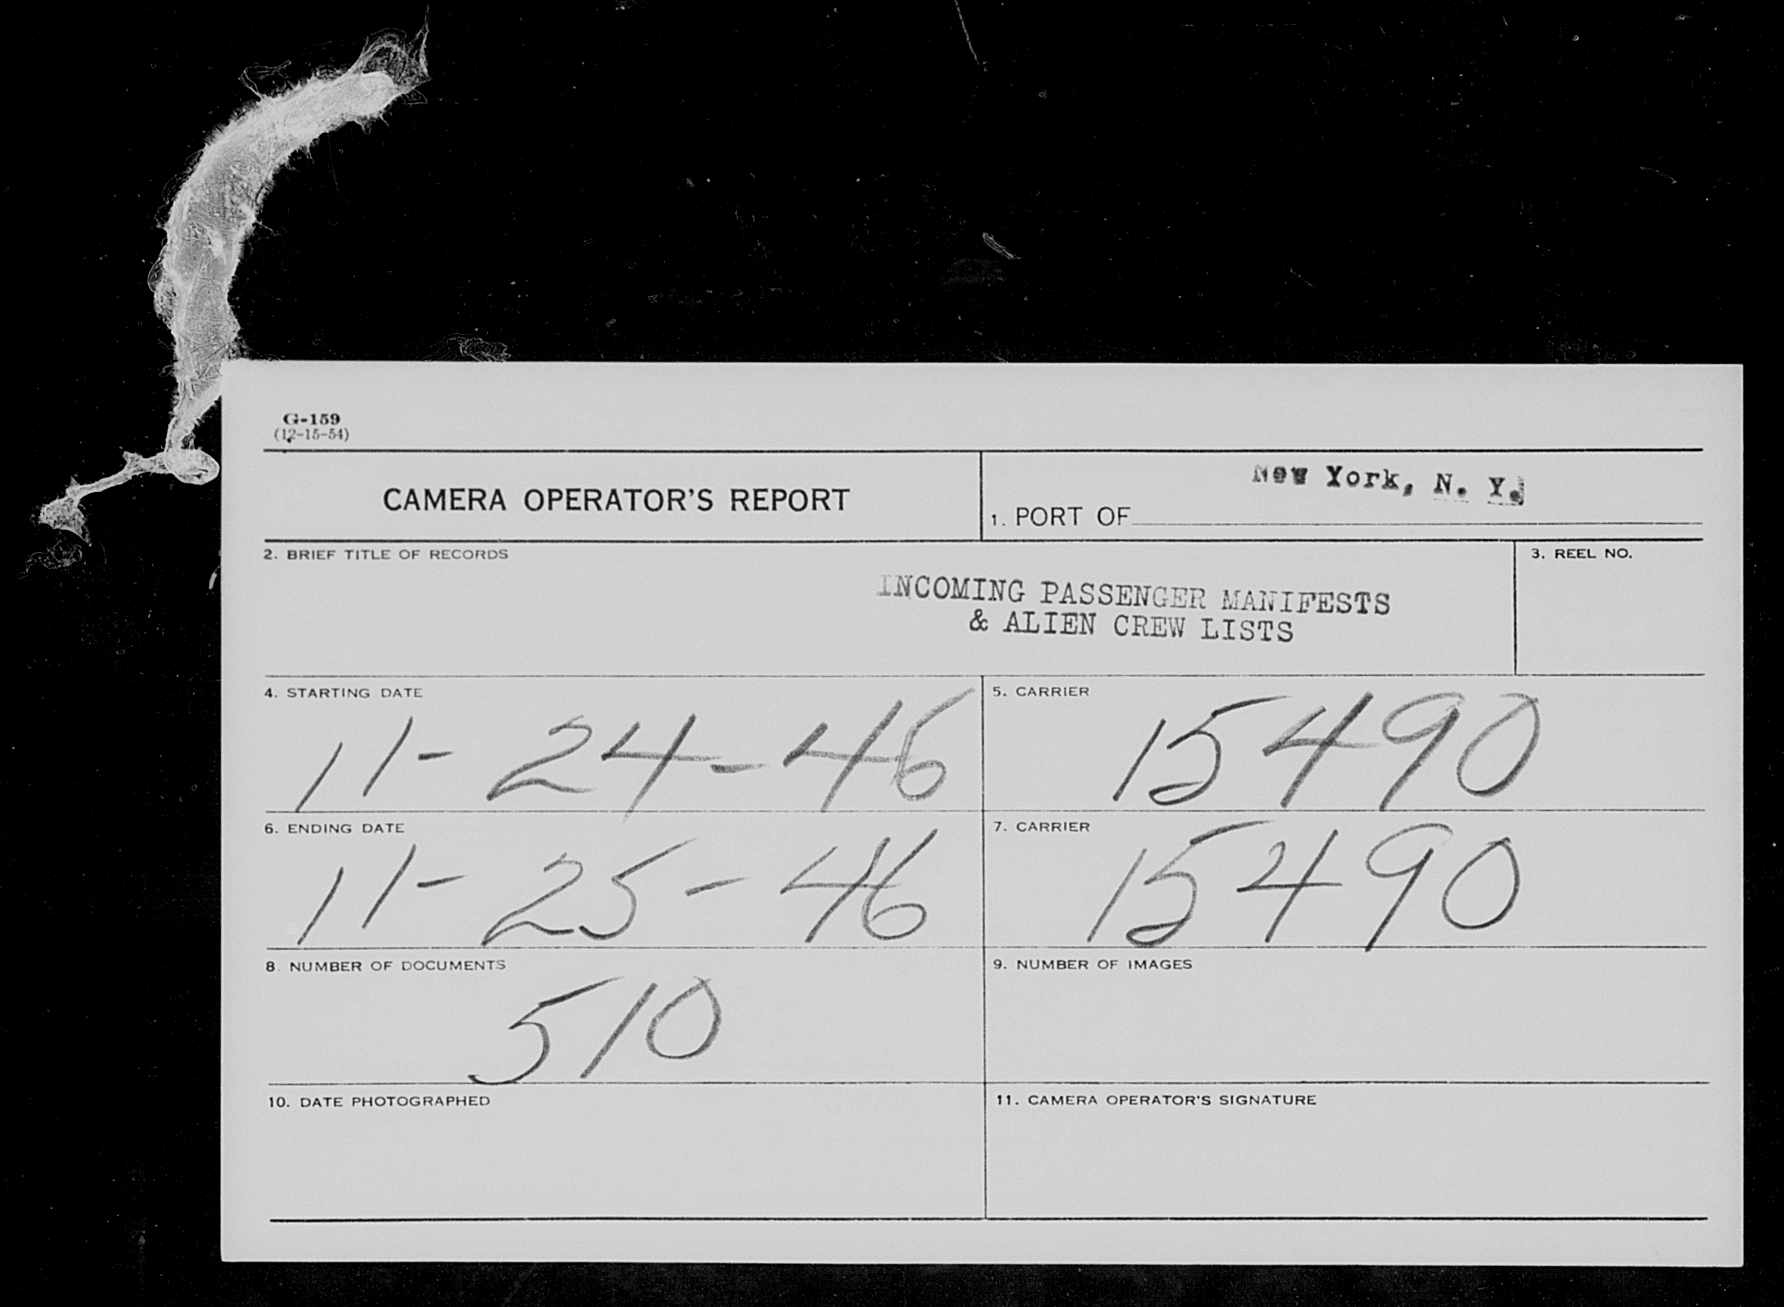 G-159
(12-15-54)
CAMERA OPERATOR'S REPORT
1. PORT OF New York, N. Y.
2. BRIEF TITLE OF RECORDS
INCOMING PASSENGER MANIFESTS
& ALIEN CREW LISTS
3. REEL NO.
4. STARTING DATE
11-24-46
5. CARRIER
15490
6. ENDING DATE
11-25-46
7. CARRIER
15490
8. NUMBER OF DOCUMENTS
510
9. NUMBER OF IMAGES
10. DATE PHOTOGRAPHED
11. CAMERA OPERATOR'S SIGNATURE